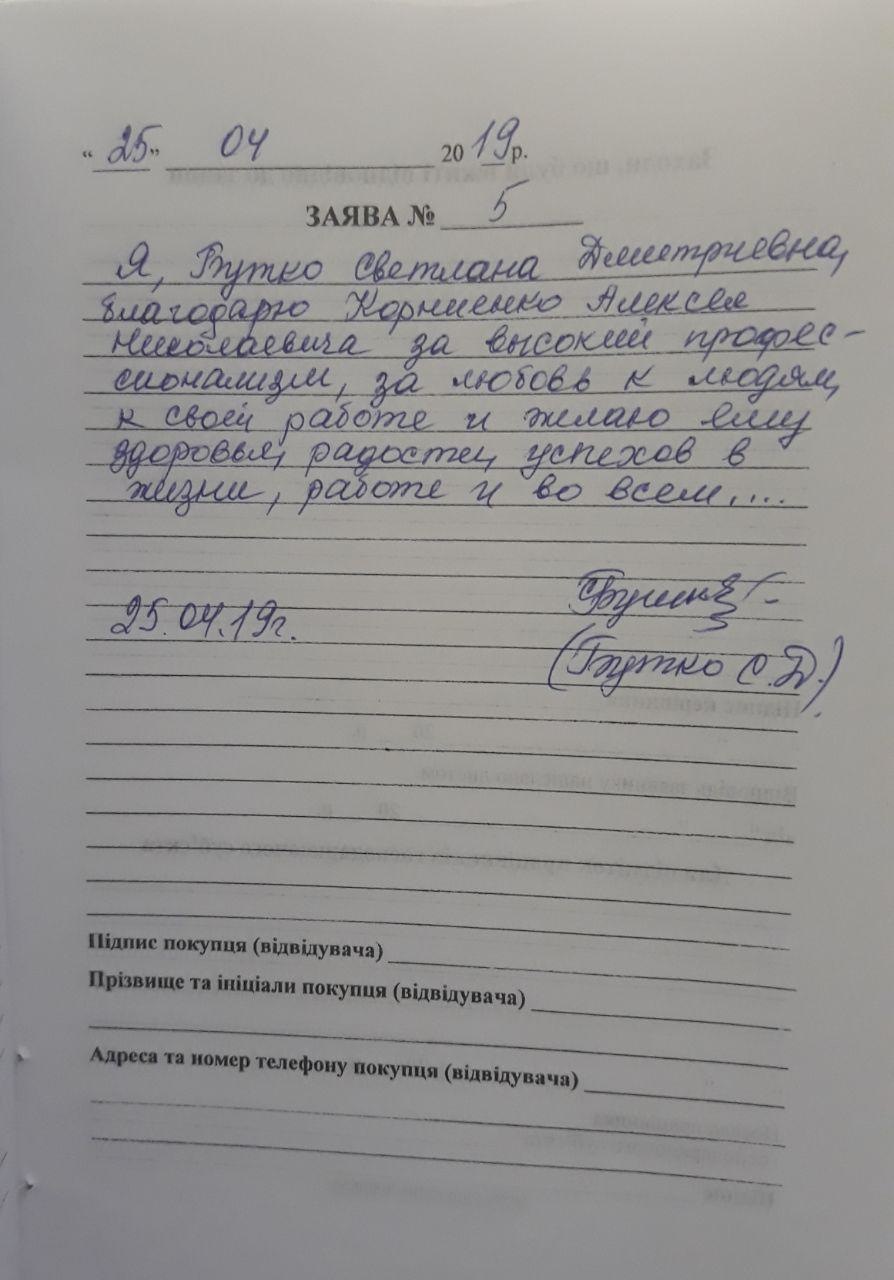 «25» 04 2019р.
ЗАЯВА № 5
Я, Бутко Светлана Дмитриевна,
благодарю Корниенко Алексея
Николаевича за высокий профес-
сионализм, за любовь к людям,
к своей работе и желаю ему
здоровья, радости, успехов в
жизни, работе и во всем....
25.04.19г.
(Бутко С.Д.)
Підпис покупця (відвідувача)
Прізвище та ініціали покупця (відвідувача)
Адреса та номер телефону покупця (відвідувача)